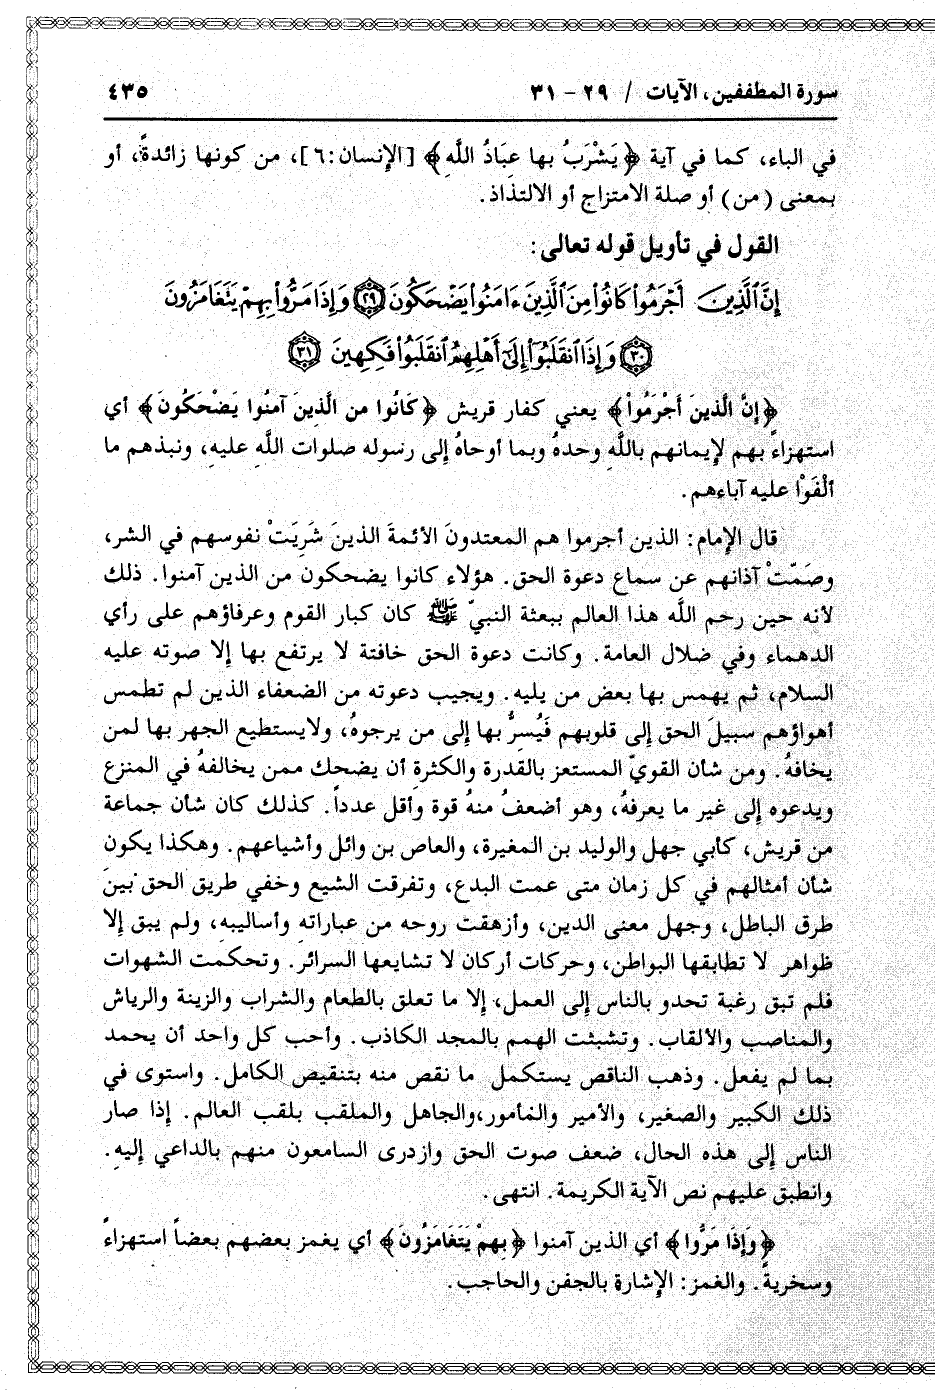 سورة المطففين، الآيات / ٢٩ - ٣١ ٤٣٥
في الباء، كما في آية ﴿يَشْرَبُ بها عِبَادُ اللَّهِ﴾ [الإنسان:٦]، من كونها زائدةً، أو
بمعنى (من) أو صلة الامتزاج أو الالتذاذ.
القول في تأويل قوله تعالى:
إِنَّ ٱلَّذِينَ أَجْرَمُوا۟ كَانُوا۟ مِنَ ٱلَّذِينَ ءَامَنُوا۟ يَضْحَكُونَ ٢٩ وَإِذَا مَرُّوا۟ بِهِمْ يَتَغَامَزُونَ
٣٠ وَإِذَا ٱنقَلَبُوٓا۟ إِلَىٰٓ أَهْلِهِمُ ٱنقَلَبُوا۟ فَكِهِينَ ٣١
﴿إِنَّ الَّذينَ أَجْرَمُواْ﴾ يعني كفار قريش ﴿كَانُوا من الَّذِينَ آمنُوا يَضْحَكُونَ﴾ أي
استهزاءً بهم لإيمانهم باللَّهِ وحدهُ وبما أوحاهُ إلى رسوله صلوات اللَّهِ عليهِ، ونبذهم ما
ألْفَوْا عليه آباءهم.
قال الإمام: الذين أجرموا هم المعتدونَ الأئمةَ الذينَ شَرِيَتْ نفوسهم في الشر،
وصَمّتْ آذانهم عن سماع دعوة الحق. هؤلاء كانوا يضحكون من الذين آمنوا. ذلك
لأنه حين رحم اللَّه هذا العالم ببعثة النبيّ ﷺ كان كبار القوم وعرفاؤهم على رأي
الدهماء وفي ضلال العامة. وكانت دعوة الحق خافتة لا يرتفع بها إلا صوته عليه
السلام، ثم يهمس بها بعض من يليه. ويجيب دعوته من الضعفاء الذين لم تطمس
أهواؤهم سبيلَ الحق إلى قلوبهم فَيُسِرُّ بها إلى من يرجوهُ، ولايستطيع الجهر بها لمن
يخافهُ. ومن شأن القويّ المستعز بالقدرة والكثرةِ أن يضحك ممن يخالفهُ في المنزع
ويدعوه إلى غير ما يعرفهُ، وهو أضعفُ منهُ قوة وأقل عدداً. كذلك كان شأن جماعة
من قريش، كأبي جهل والوليد بن المغيرة، والعاص بن وائل وأشياعهم. وهكذا يكون
شأن أمثالهم في كل زمان متى عمت البدع، وتفرقت الشيع وخفي طريق الحق بينَ
طرق الباطل، وجهل معنى الدين، وأزهقت روحه من عباراته وأساليبه، ولم يبق إلا
ظواهر لا تطابقها البواطن، وحركات أركان لا تشايعها السرائر. وتحكمت الشهوات
فلم تبق رغبة تحدو بالناس إلى العمل، إلا ما تعلق بالطعام والشراب والزينة والرياش
والمناصب والألقاب. وتشبثت الهمم بالمجد الكاذب. وأحب كل واحد أن يحمد
بما لم يفعل. وذهب الناقص يستكمل ما نقص منه بتنقيص الكامل. واستوى في
ذلك الكبير والصغير، والأمير والمأمور،والجاهل والملقب بلقب العالم. إذا صار
الناس إلى هذه الحال، ضعف صوت الحق وازدرى السامعون منهم بالداعي إليهِ.
وانطبق عليهم نص الآية الكريمة. انتهى.
﴿وَإِذَا مَرُّوا﴾ أي الذين آمنوا ﴿بِهِمْ يَتَغَامَزُونَ﴾ أي يغمز بعضهم بعضاً استهزاءً
وسخريةً. والغمز: الإشارة بالجفن والحاجب.